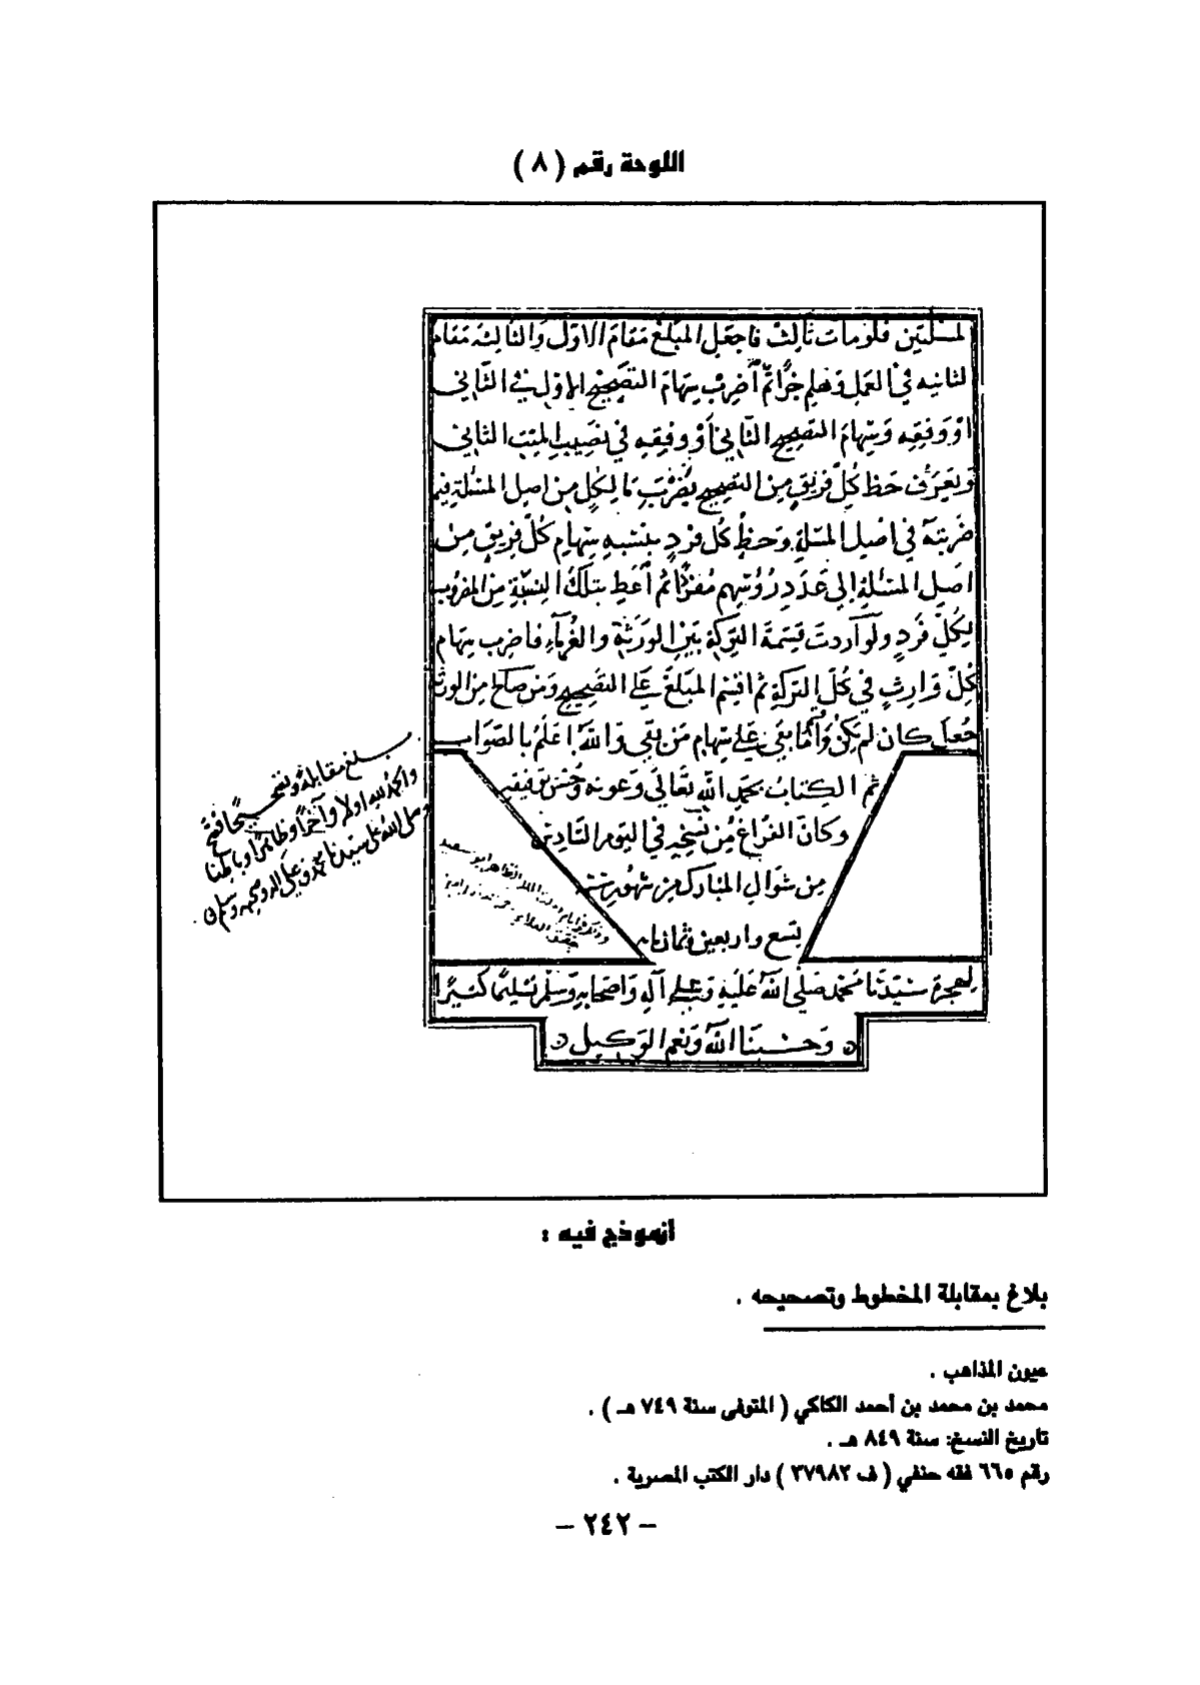 اللوحة رقم ( ٨ )
المسئلتين فلو مات ثالث فاجعل المبلغ مقام الاول والثالثه مقام
الثانيه في العمل وهلم جرًّا ثم اضرب سهام التصحيح الاول في الثاني
او وفقه وسهام التصحيح الثاني أو وفقه في نصيب الميت الثاني
ويعرف حظ كل فريق من التصحيح بضرب ما لكل من اصل المسئلة فيما
ضربته في اصل المسئلة وحظ كل فرد بنسبه سهام كل فريق من
اصل المسئلة إلى عدد رؤسهم مفردًا ثم أعط بتلك النسبة من المضروب
لكل فرد ولو أردت قسمة التركة بين الورثة والغرماء فاضرب سهام
كل وارث في كل التركة ثم اقسم المبلغ على التصحيح ومن صالح من الورثة
جعل كان لم يكن واقسم ما بقي على سهام من بقي والله اعلم بالصواب
تم الكتاب بحمد الله تعالى وعونه وحسن توفيقه
وكان الفراغ من نسخه في اليوم السادس
من شوال المبارك من شهور سنة
تسع واربعين وثمانمايه
لهجرة سيدنا محمد صلى الله عليه وعلى آله واصحابه وسلم تسليمًا كثيرًا
وحسبنا الله ونعم الوكيل
بلغ مقابلة وتصحيحًا فصح
والحمد لله اولا وآخرًا وظاهرًا وباطنا
وصلى الله على سيدنا محمد وعلى اله وصحبه وسلم
أنموذج فيه :
بلاغ بمقابلة المخطوط وتصحيحه .
عيون المذاهب .
محمد بن محمد بن أحمد الكاكي ( المتوفى سنة ٧٤٩ هـ ) .
تاريخ النسخ: سنة ٨٤٩ هـ .
رقم ٦٦٥ فقه حنفي ( ف ٣٧٩٨٢ ) دار الكتب المصرية .
– ٢٤٢ –